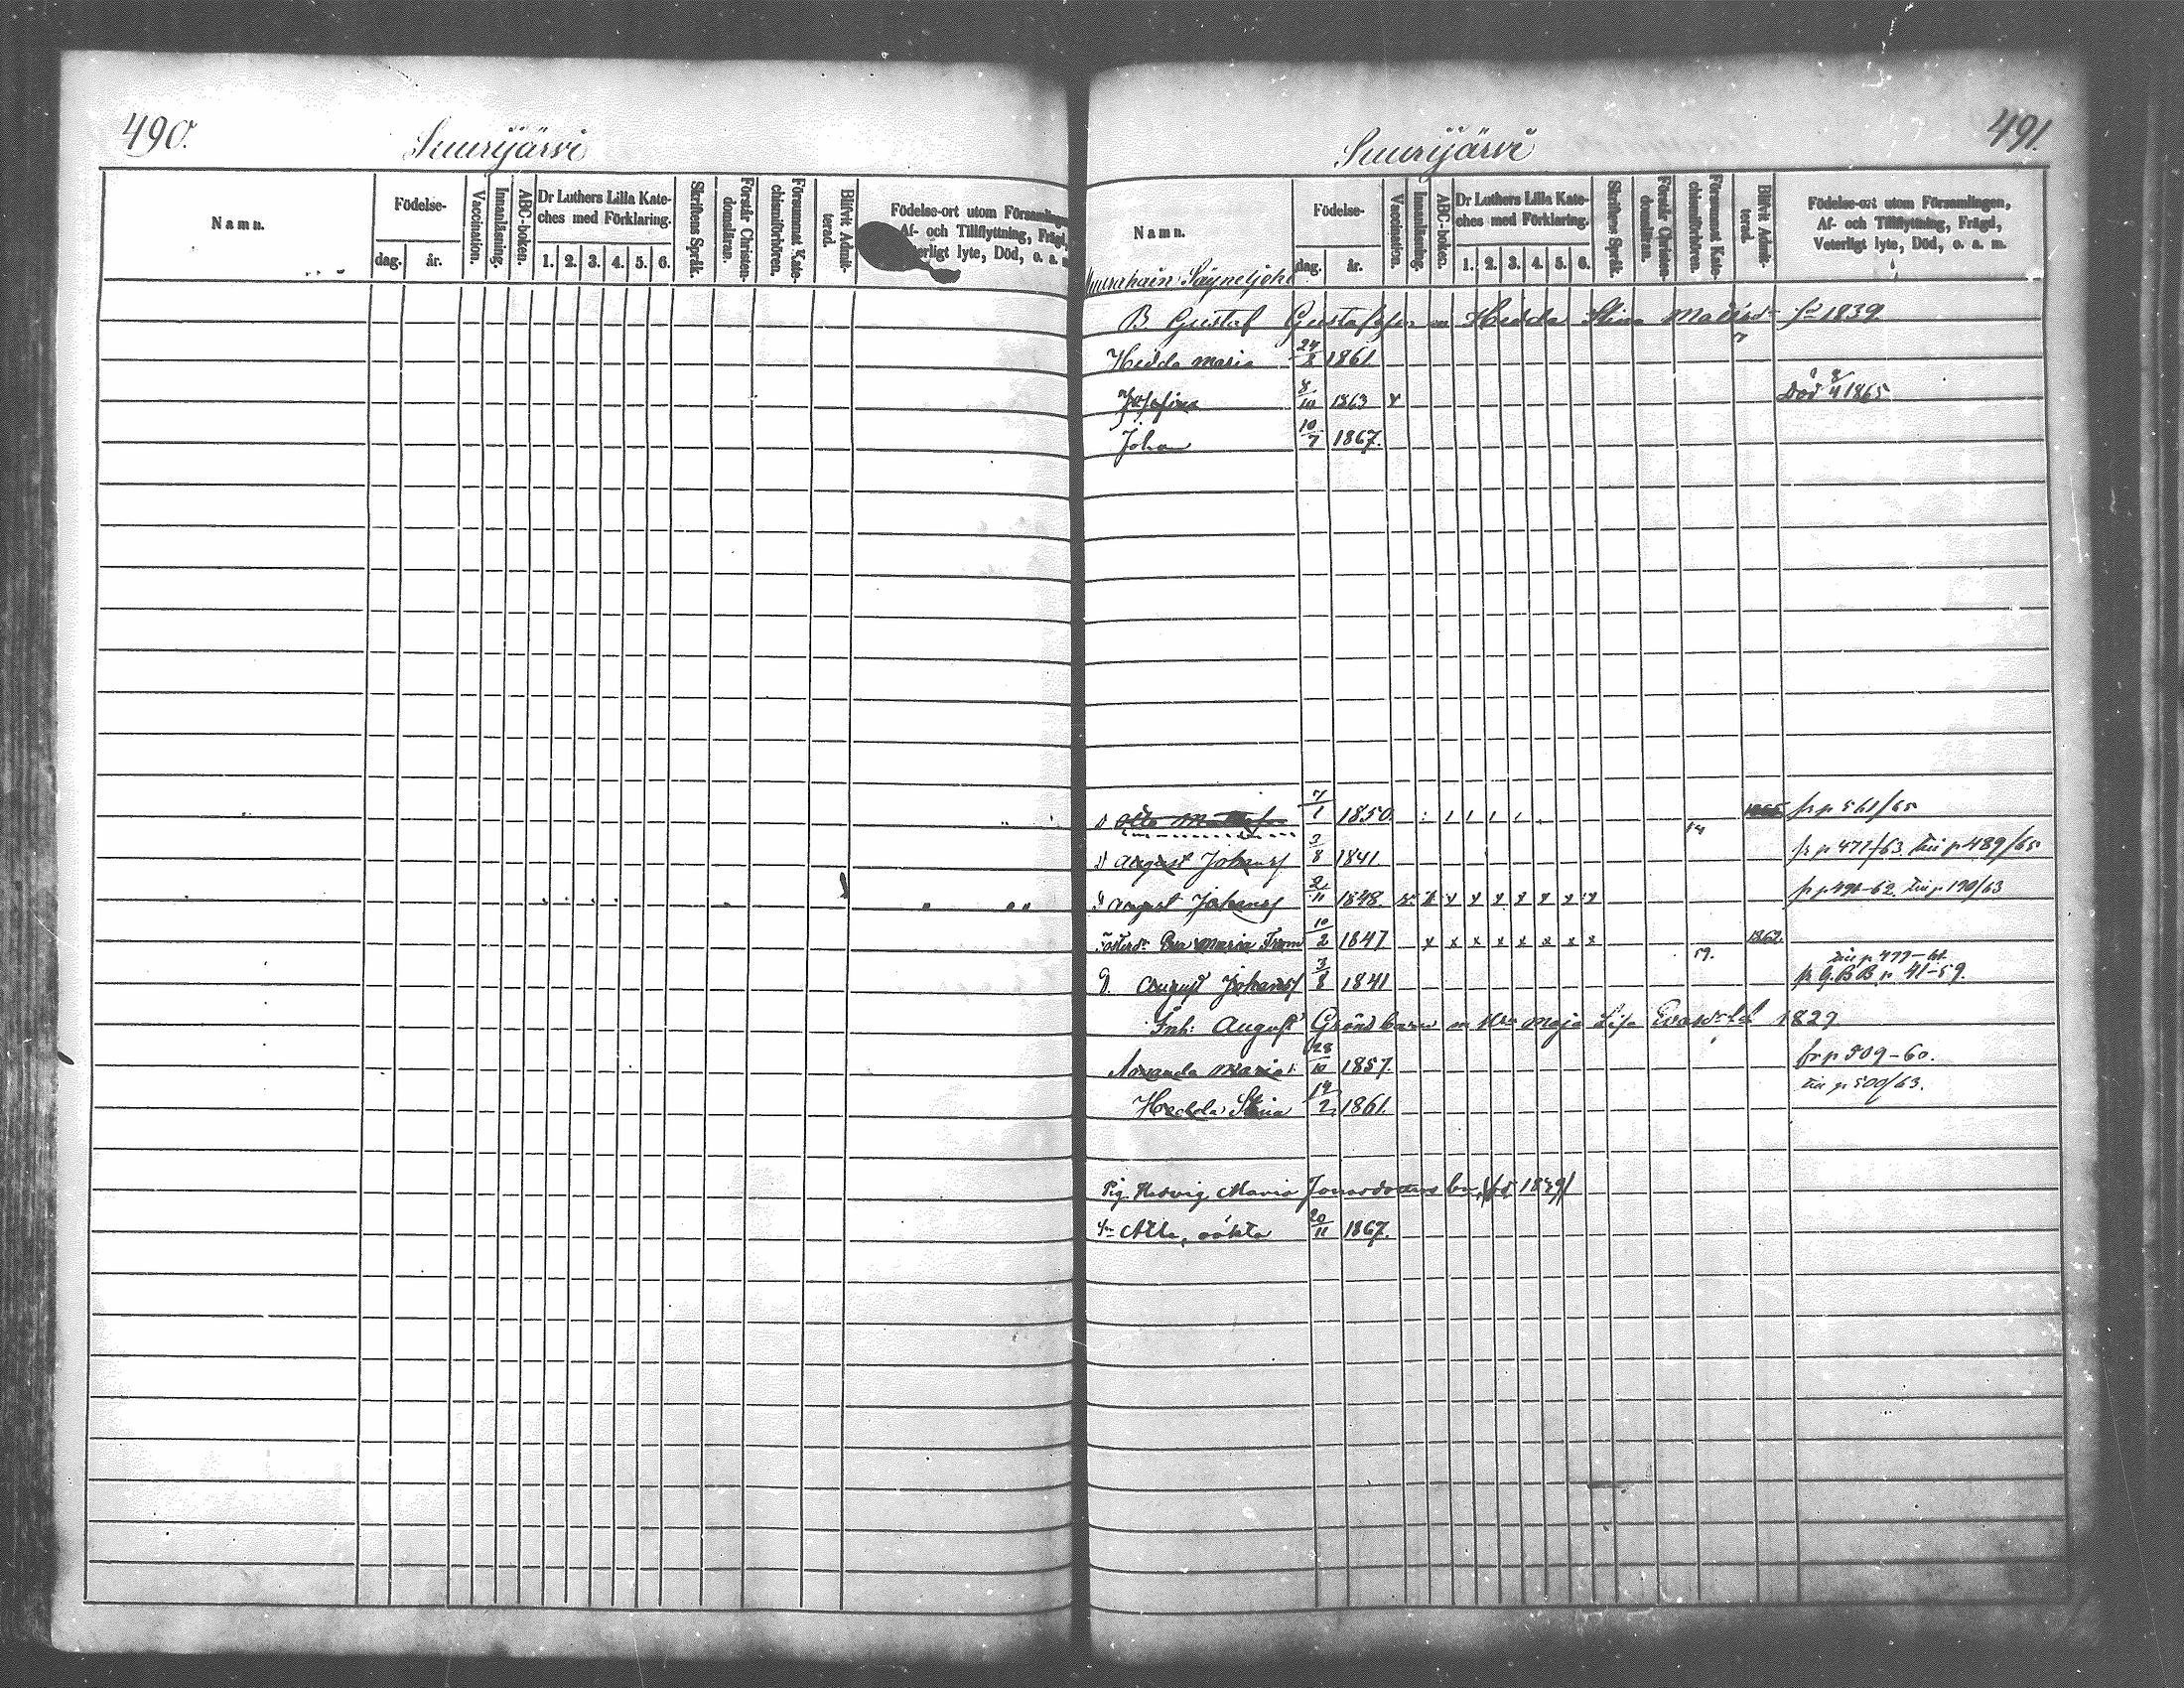 490.
Suurijärvi
Namn.
Födelse-
dag.
år.
Vaccination.
Innanläsning.
ABC-boken.
Dr Luthers Lilla Kate-
ches med Förklaring.
1. 2. 3. 4. 5. 6.
Skriftens Språk.
Förstår Christen-
domsläran.
Försummat Kate-
chismiförhören.
Blifvit Admit-
terad.
Födelse-ort utom Församlingen
Af- och Tillflyttning, Frägd,
Veterligt lyte, Död, o. a. m.
491.
Suurijärvi
Namn.
Födelse-
dag.
år.
Vaccination.
Innanläsning.
ABC-boken.
Dr Luthers Lilla Kate-
ches med Förklaring.
1. 2. 3. 4. 5. 6.
Skriftens Språk.
Förstår Christen-
domsläran.
Försummat Kate-
chismiförhören.
Blifvit Admit-
terad.
Födelse-ort utom Församlingen,
Af- och Tillflyttning, Frägd,
Veterligt lyte, Död, o. a. m.
B Gustaf Gustafsson m Hedda Stina 1839
Hedda Maria 1861
Josefina 8/10 1863 x Död 1865
Johan 10/7 1867.
Otto 7/1 1850. fr p 561/65
D August Johans 3/8 1841 fr p 477/63 p 489/65
D August Johans 2/11 1848. x x x x x x x p 190/63
Eva Maria 10/2 1847 x x x x x x x x 1862.
59. p 477-61.
D. August Johans 3/8 1841 fr G.B.B. p 41-59.
Inh: August m Maja Lisa 1829
Amanda Maria 28/10 1857. fr p 509-60.
p 500/63.
Hedda Stina 19/2 1861.
Pig. Hedvig Maria Jonasdotters
Sn Atte, oäkta 20/11 1867.